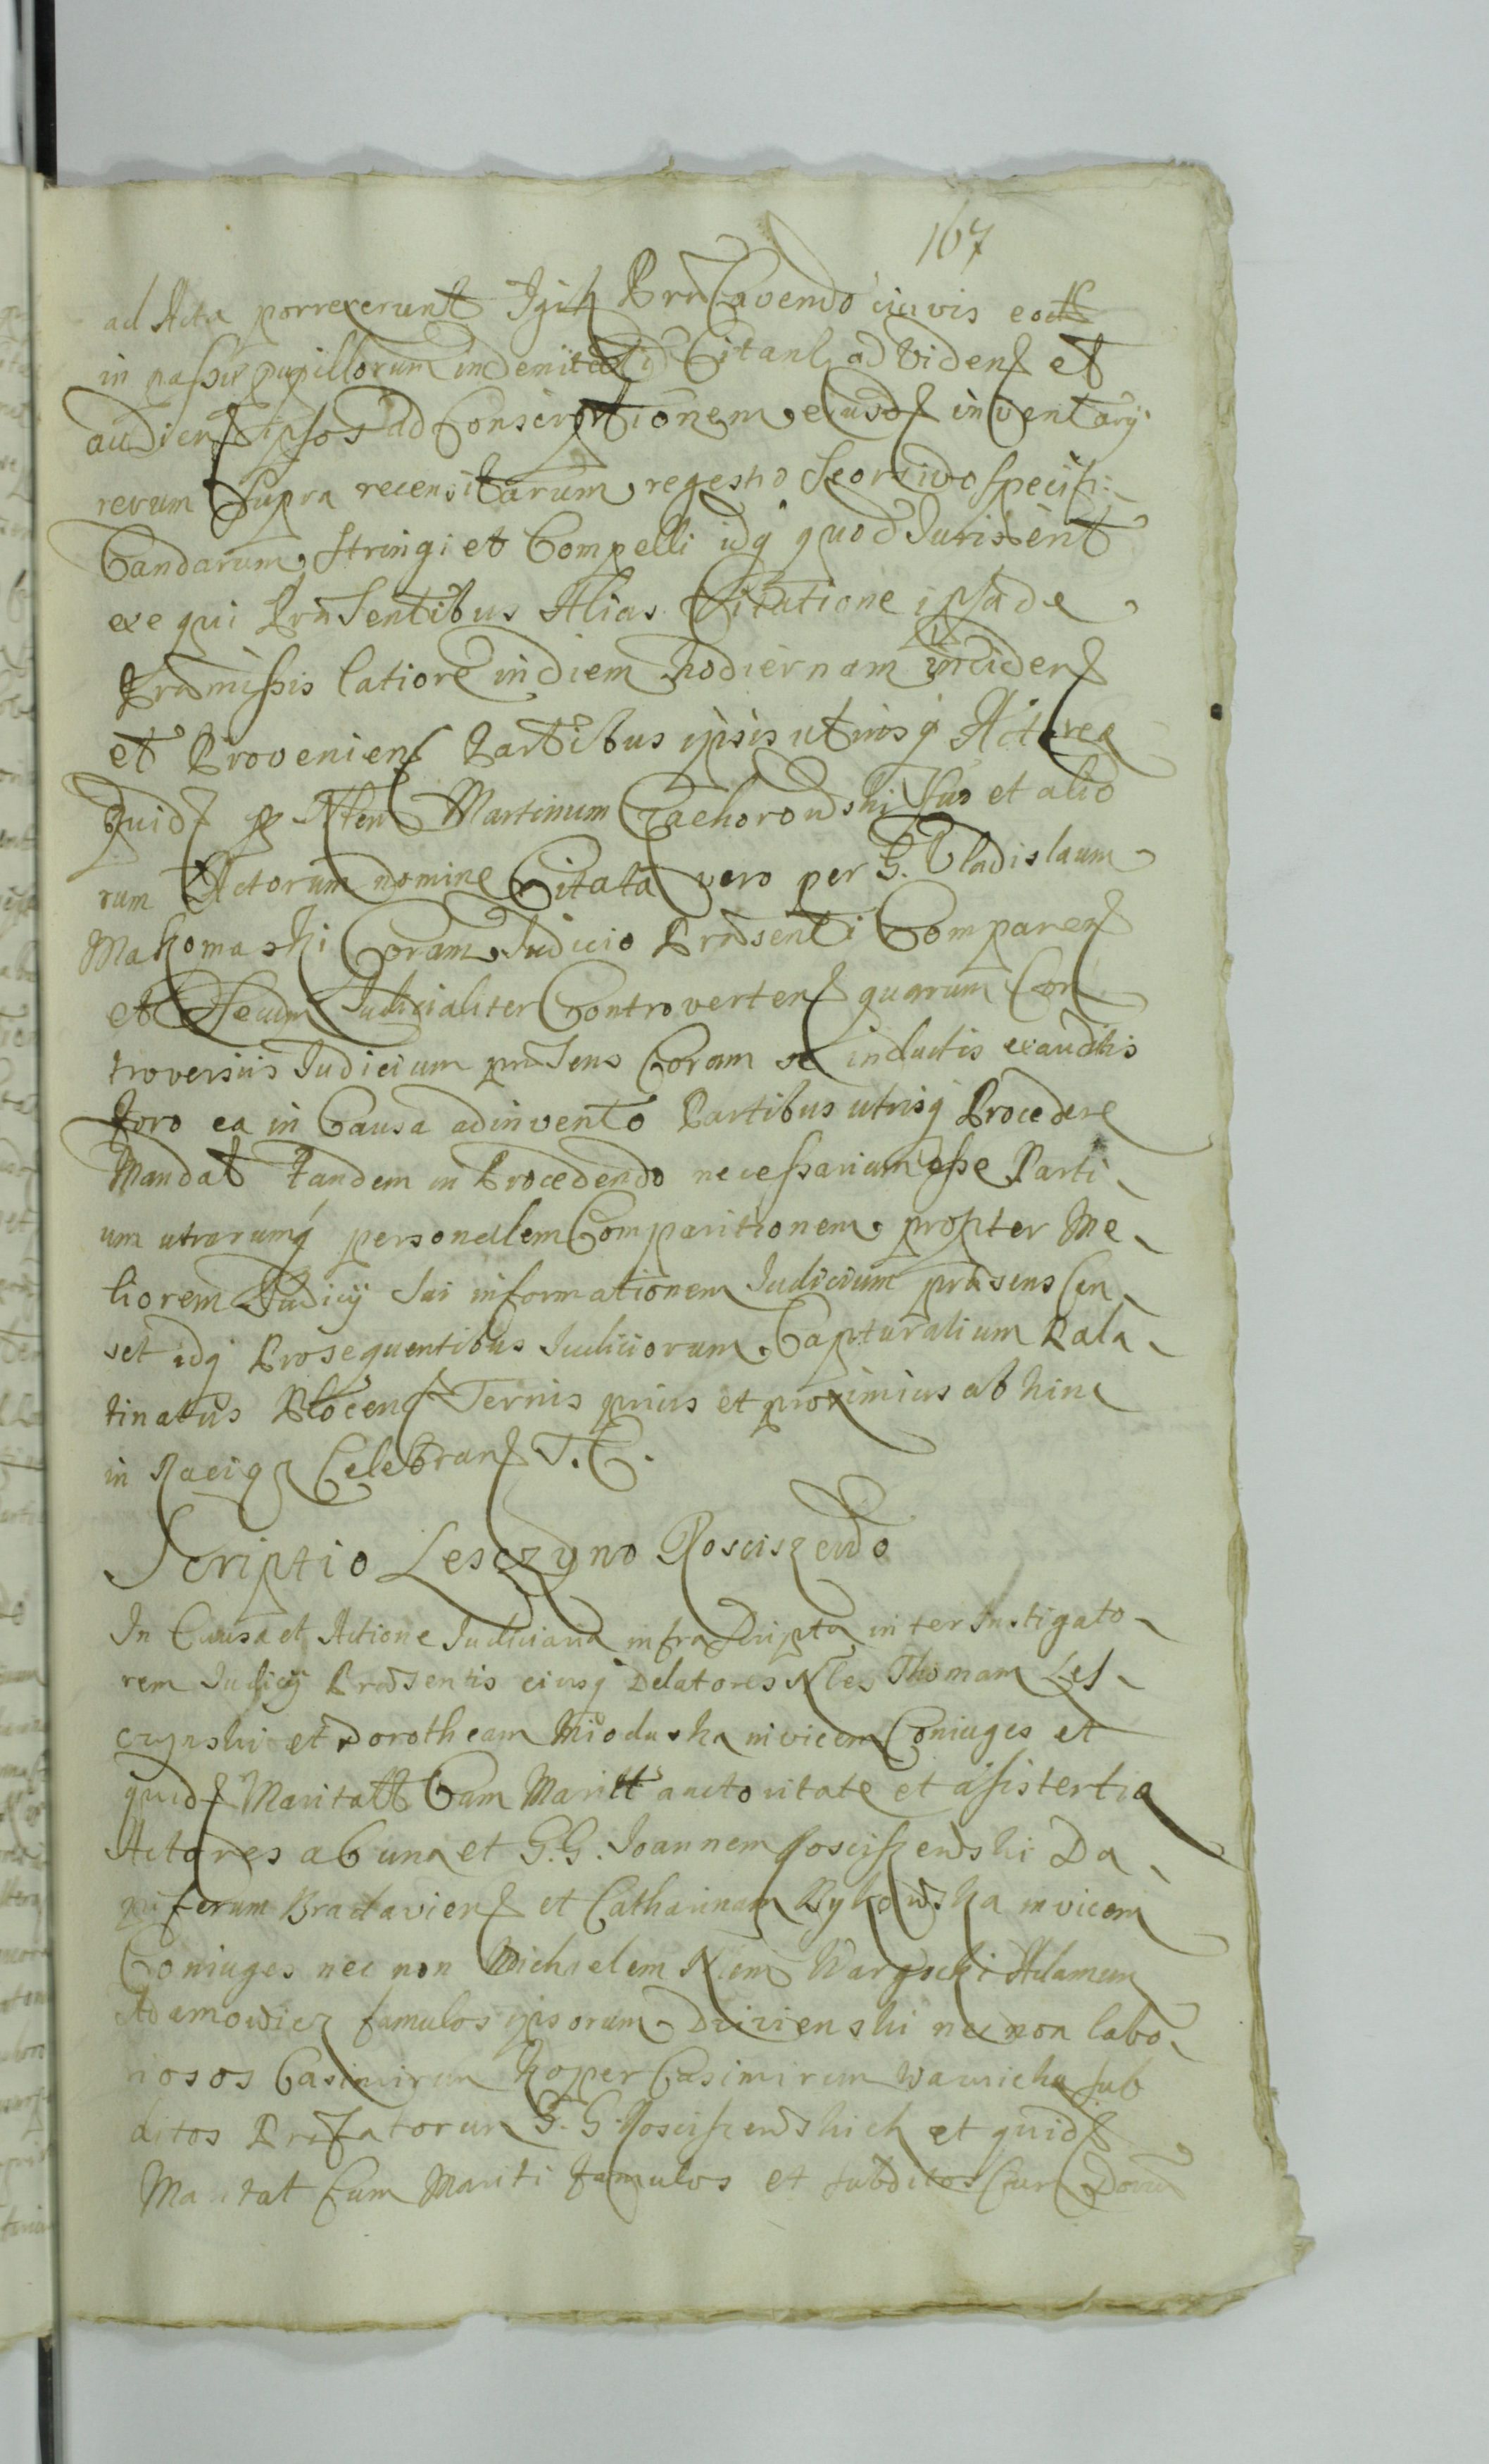 167
ad Acta porrexerunt Igit Prae Cavendo cuivis
in passu pupillorum indemnitati Citant ad Videns et
audiens ipsos ad Conscriptionem eiusd inventarÿ
rerum Supra recensitarum regestro Seorsivo Specifi:
Candarum Stringi et Compelli idq quod Juris erit
exequi Praesentibus Alias Citatione ipsa de
Praemissis latiore in diem hodiernam inciden
et Provenien Partibus ipsis utrisq Actorea
quid p Martinum suo et alio
rum Actorum nomine Citata vero per G. Vladislaum
Makomaski Coram Judicio Praesenti Comparen
et Secum Judicialiter Controverten quarum Con
troversiis Judicium praesens Coram se inductis exauditis
foro ea in Causa adinvento Partibus utrisq Procedere
Mandat Tandem in Procedendo necessariam esse Parti
um utrarumq personalem Comparitionem propter Me
liorem Judicÿ Sui informationem Judicium praesens Cen
set idq Prosequentibus Judiciorum Capturalium Pala
tinatus Plocen Ternis prius et proximius ab hinc
in Raciąz Celebran T. C.
Scriptio Lesczyno Rosciszewo
In Causa et Actione Judiciaria infra Scripta inter Instigato
rem Judicÿ Praesentis eiusq Delatores Nles Thomam Les
czynski et Dorotheam Mioduska invicem Coniuges et
quid Maritatt Cum Maritt auctoritate et assistentia
Actores ab una et G.G. Joannem Rosciszewski Da
piferum Bractavien et Catharinam Rykowska invicem
Coniuges nec non Michaelem Adamum
Adamowicz famulos ipsorum nec non labo
riosos Casimirum Koper Casimirum sub
ditos Praefatorum G.G. Rosciszewskich et quid
Maritat Cum Mariti famulos et subditos Cum